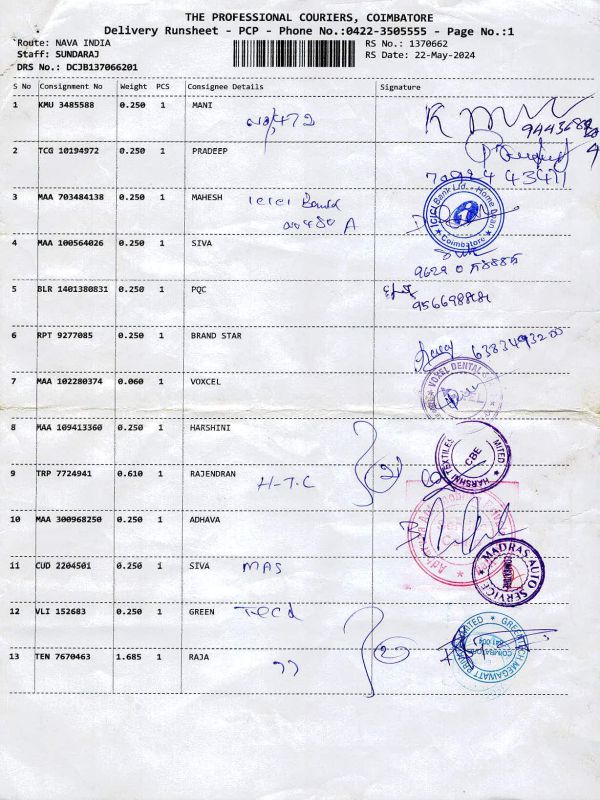 THE PROFESSIONAL COURIERS, COIMBATORE
Delivery Runsheet - PCP - Phone No.:0422-3505555 - Page No.:1
Route: NAVA INDIA
RS No.: 1370662
Staff: SUNDARAJ
RS Date: 22-May-2024
DRS No.: DCJB137066201
S No Consignment No Weight PCS Consignee Details Signature
1 KMU 3485588 0.250 1 MANI
2 TCG 10194972 0.250 1 PRADEEP
3 MAA 703484138 0.250 1 MAHESH
ICICI Bank Ltd. - Home Loan
Coimbatore
4 MAA 100564026 0.250 1 SIVA
5 BLR 1401380831 0.250 1 PQC
6 RPT 9277085 0.250 1 BRAND STAR
7 MAA 102280374 0.060 1 VOXCEL
VOXEL DENTAL
8 MAA 109413360 0.250 1 HARSHINI
HARSHNI TEXTILES
MITED
CBE
9 TRP 7724941 0.610 1 RAJENDRAN H-T.C
10 MAA 300968250 0.250 1 ADHAVA
11 CUD 2204501 0.250 1 SIVA MAS
MADRAS AUTO SERVICE
12 VLI 152683 0.250 1 GREEN
GREENTECH MEGAWATT
13 TEN 7670463 1.685 1 RAJA